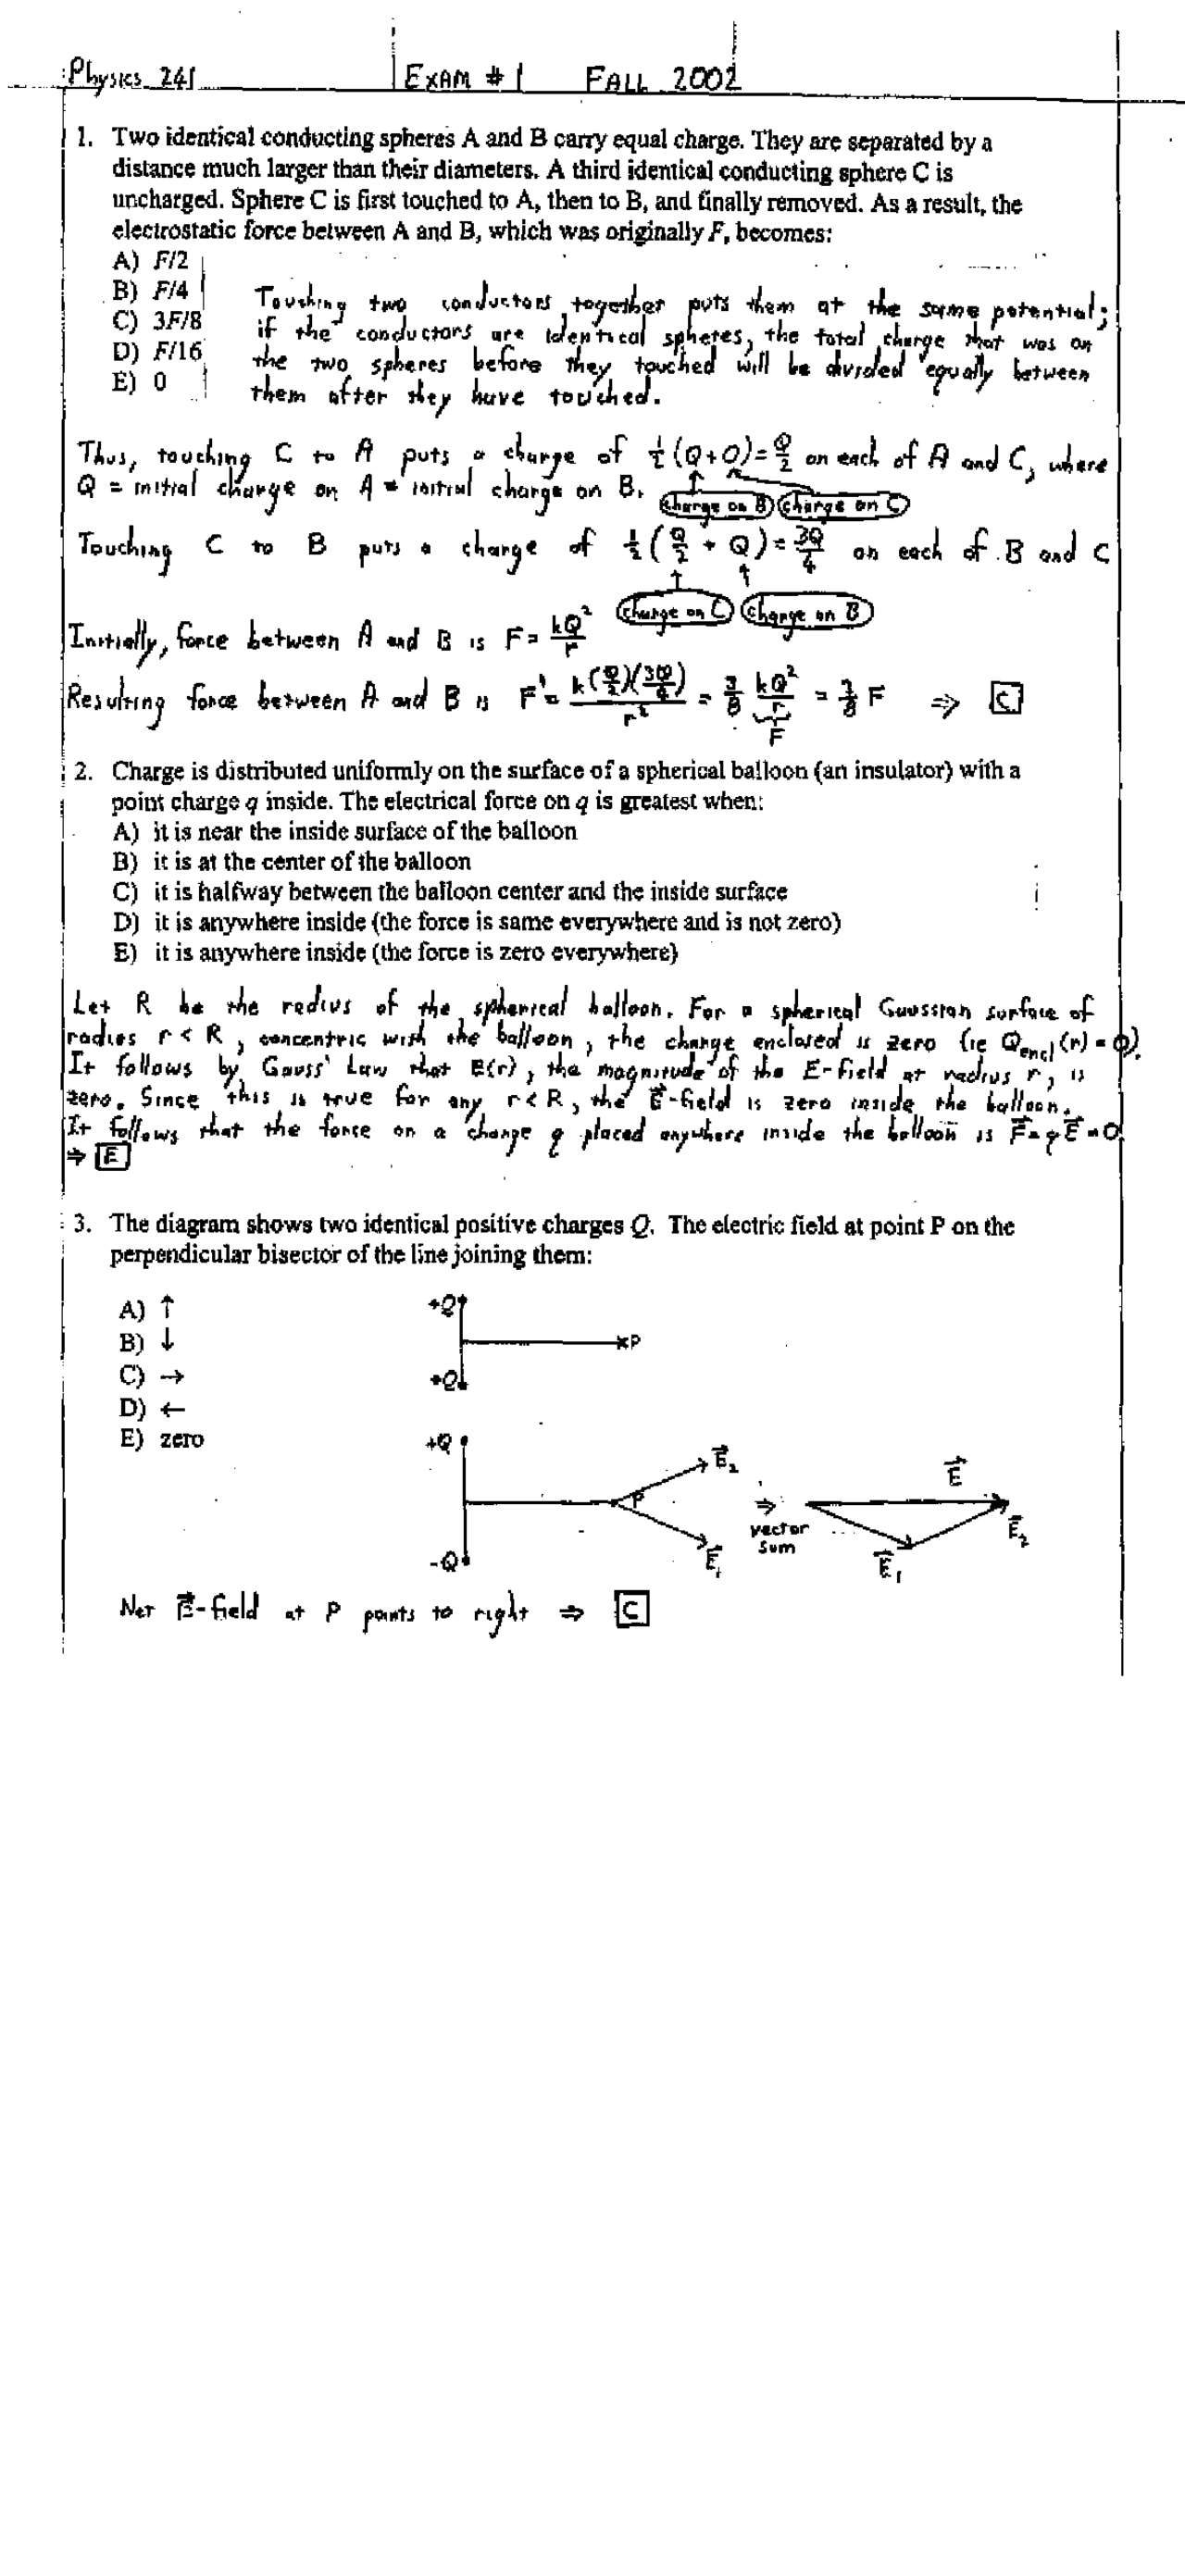 Physics 241 EXAM # 1 FALL 2002
1. Two identical conducting spheres A and B carry equal charge. They are separated by a
distance much larger than their diameters. A third identical conducting sphere C is
uncharged. Sphere C is first touched to A, then to B, and finally removed. As a result, the
electrostatic force between A and B, which was originally F, becomes:
A) F/2
B) F/4
C) 3F/8
D) F/16
E) 0
Touching two conductors together puts them at the same potential;
if the conductors are identical spheres, the total charge that was on
the two spheres before they touched will be divided equally between
them after they have touched.
Thus, touching C to A puts a charge of ½(Q+0)=Q/2 on each of A and C, where
Q = initial charge on A = initial charge on B.
charge on B charge on C
Touching C to B puts a charge of ½(Q/2 + Q) = 3Q/4 on each of B and C
charge on C charge on B
Initially, force between A and B is F = kQ²/r
Resulting force between A and B is F' = k(Q/2)(3Q/4)/r² = 3/8 kQ²/r = 3/8 F ⇒ C
F
2. Charge is distributed uniformly on the surface of a spherical balloon (an insulator) with a
point charge q inside. The electrical force on q is greatest when:
A) it is near the inside surface of the balloon
B) it is at the center of the balloon
C) it is halfway between the balloon center and the inside surface
D) it is anywhere inside (the force is same everywhere and is not zero)
E) it is anywhere inside (the force is zero everywhere)
Let R be the radius of the spherical balloon. For a spherical Gaussian surface of
radius r < R, concentric with the balloon, the charge enclosed is zero (ie Qencl(r) = 0).
It follows by Gauss' Law that E(r), the magnitude of the E-field at radius r, is
zero. Since this is true for any r < R, the E⃗-field is zero inside the balloon.
It follows that the force on a charge q placed anywhere inside the balloon is F⃗ = qE⃗ = 0.
⇒ E
3. The diagram shows two identical positive charges Q. The electric field at point P on the
perpendicular bisector of the line joining them:
A) ↑
B) ↓
C) →
D) ←
E) zero
+Q
P
+Q
+Q
P
-Q
E⃗₂
E⃗₁
⇒
vector
sum
E⃗
E⃗₁
E⃗₂
Net E⃗-field at P points to right ⇒ C